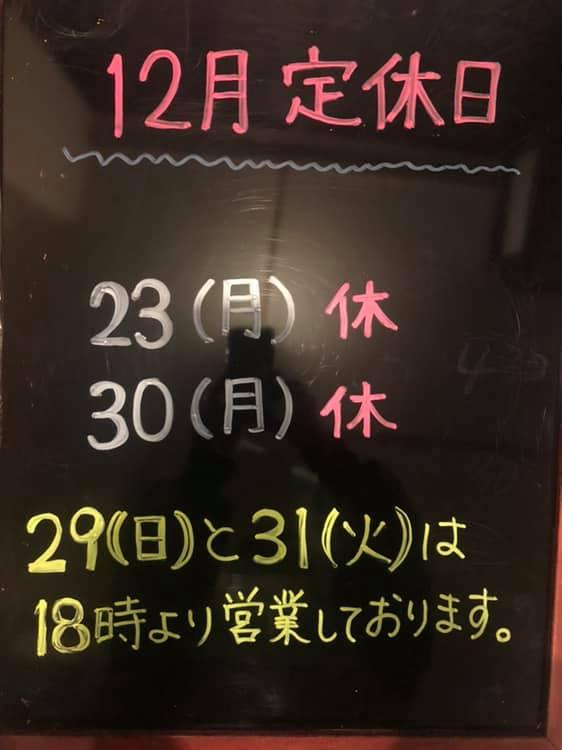 12月 定休日
23(月) 休
30(月) 休
29(日)と31(火)は
18時より営業しております。